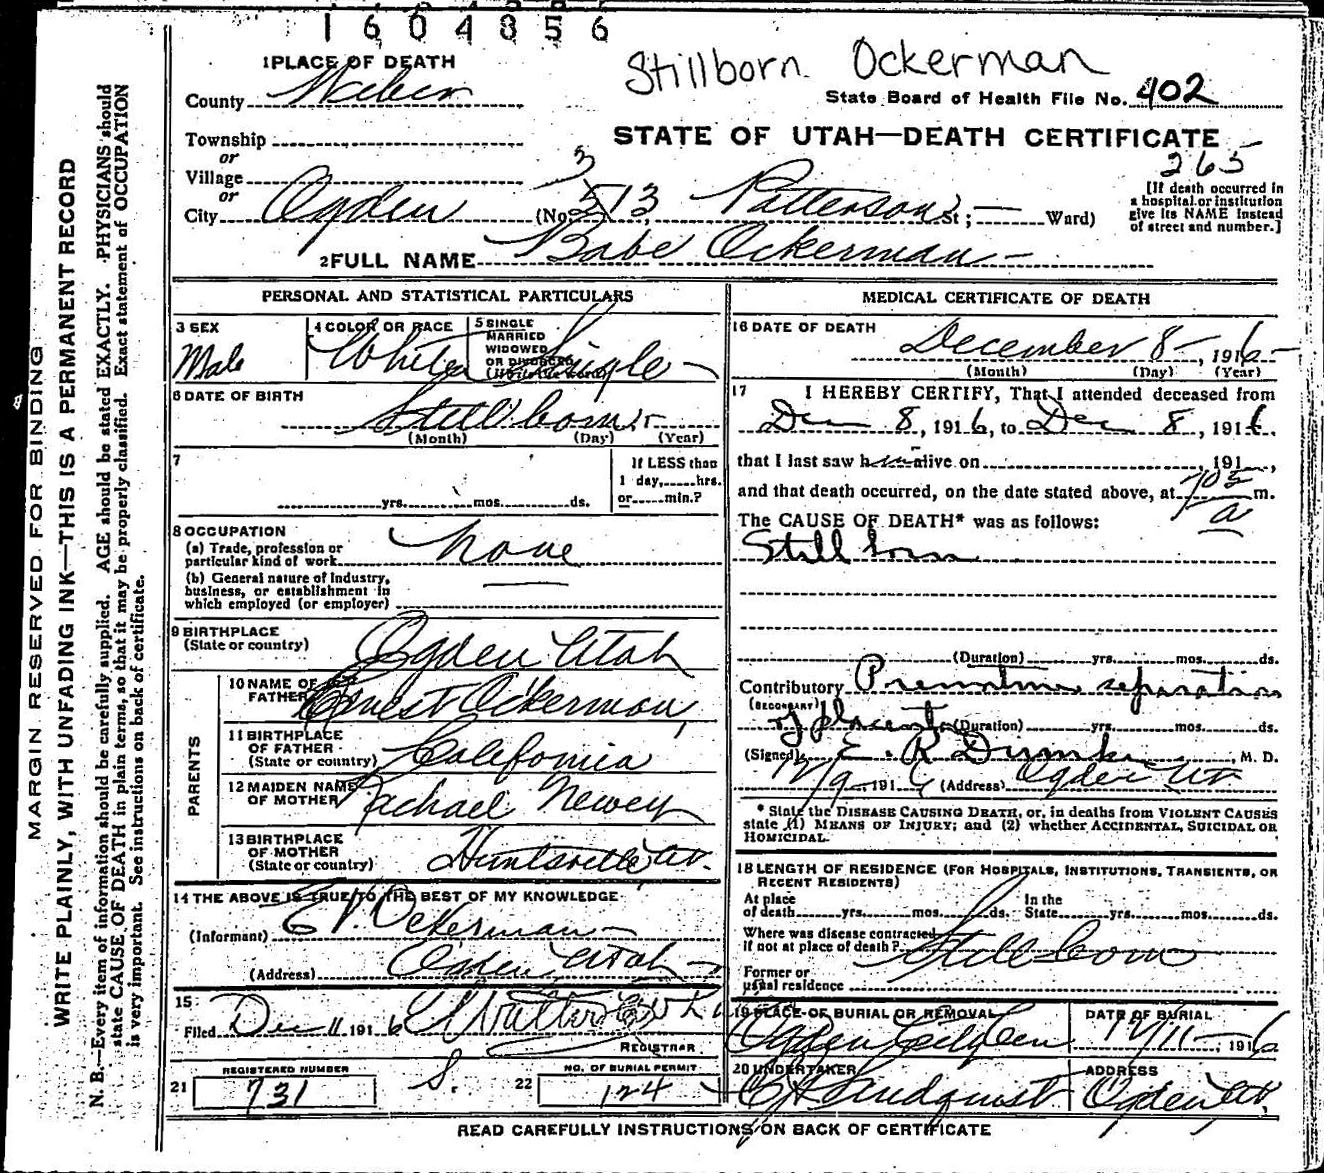 1604856
Stillborn Ockerman
1 PLACE OF DEATH
County Weber
State Board of Health File No. 402
Township
STATE OF UTAH—DEATH CERTIFICATE
or
Village
265
or
[If death occurred in a hospital or institution give its NAME instead of street and number.]
City Ogden (No. 513 Patterson St; — Ward)
2 FULL NAME Babe Ockerman
PERSONAL AND STATISTICAL PARTICULARS
3 SEX Male
4 COLOR OR RACE White
5 SINGLE MARRIED WIDOWED OR DIVORCED (Write the word) Single
6 DATE OF BIRTH Stillborn
(Month) (Day) (Year)
7
yrs. mos. ds.
If LESS than 1 day, hrs. or min.?
8 OCCUPATION
(a) Trade, profession or particular kind of work none
(b) General nature of industry, business, or establishment in which employed (or employer)
9 BIRTHPLACE (State or country) Ogden Utah
PARENTS
10 NAME OF FATHER Ernest Ockerman
11 BIRTHPLACE OF FATHER (State or country) California
12 MAIDEN NAME OF MOTHER Rachael Newey
13 BIRTHPLACE OF MOTHER (State or country) Huntsville Ut.
14 THE ABOVE IS TRUE TO THE BEST OF MY KNOWLEDGE
(Informant) E.V. Ockerman
(Address) Ogden, Utah
15
Filed Dec 11 1916
REGISTRAR
21 REGISTERED NUMBER 731
S.
22 NO. OF BURIAL PERMIT 124
MEDICAL CERTIFICATE OF DEATH
16 DATE OF DEATH
December 8 —, 1916
(Month) (Day) (Year)
17 I HEREBY CERTIFY, That I attended deceased from
Dec 8, 1916, to Dec 8, 1916.
that I last saw h alive on , 191 ,
and that death occurred, on the date stated above, at 705 a m.
The CAUSE OF DEATH* was as follows:
Still born
(Duration) yrs. mos. ds.
Contributory Premature separation
(SECONDARY)
of placenta (Duration) yrs. mos. ds.
(Signed) E. R. Dumke M. D.
12/9 1916 (Address) Ogden Ut
* State the DISEASE CAUSING DEATH, or, in deaths from VIOLENT CAUSES state (1) MEANS OF INJURY; and (2) whether ACCIDENTAL, SUICIDAL OR HOMICIDAL.
18 LENGTH OF RESIDENCE (FOR HOSPITALS, INSTITUTIONS, TRANSIENTS, OR RECENT RESIDENTS)
At place of death yrs. mos. ds. In the State yrs. mos. ds.
Where was disease contracted if not at place of death? Stillborn
Former or usual residence
19 PLACE OF BURIAL OR REMOVAL
Ogden City Cem
DATE OF BURIAL
12/11— 1916
20 UNDERTAKER
Lindquist
ADDRESS
Ogden, Ut.
READ CAREFULLY INSTRUCTIONS ON BACK OF CERTIFICATE
MARGIN RESERVED FOR BINDING
WRITE PLAINLY, WITH UNFADING INK—THIS IS A PERMANENT RECORD
N. B.—Every item of information should be carefully supplied. AGE should be stated EXACTLY. PHYSICIANS should
state CAUSE OF DEATH in plain terms, so that it may be properly classified. Exact statement of OCCUPATION
is very important. See instructions on back of certificate.